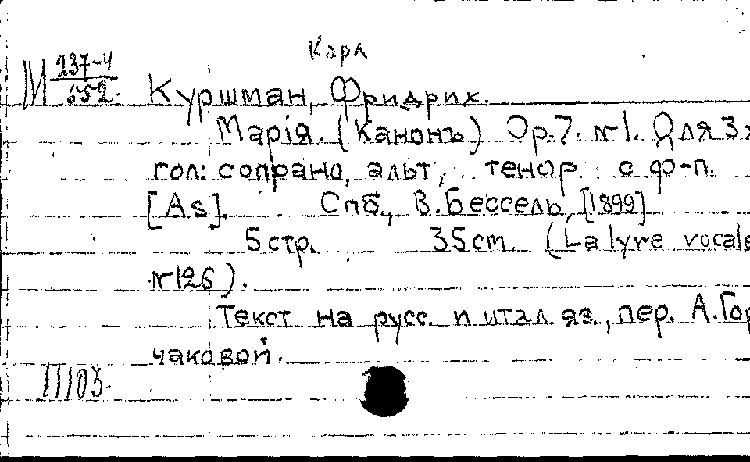 Карл
М 237-4/552.
Куршман, Фридрих.
Марія. (Канонъ) Op.7. №1. Для 3х
гол: сопрано, альт, тенор с ф-п.
[As]. Спб., В. Бессель, [1899]
5 стр. 35 cm. (La lyre vocale
№126).
Текст на русс. и итал яз., пер. А. Гор
чаковой.